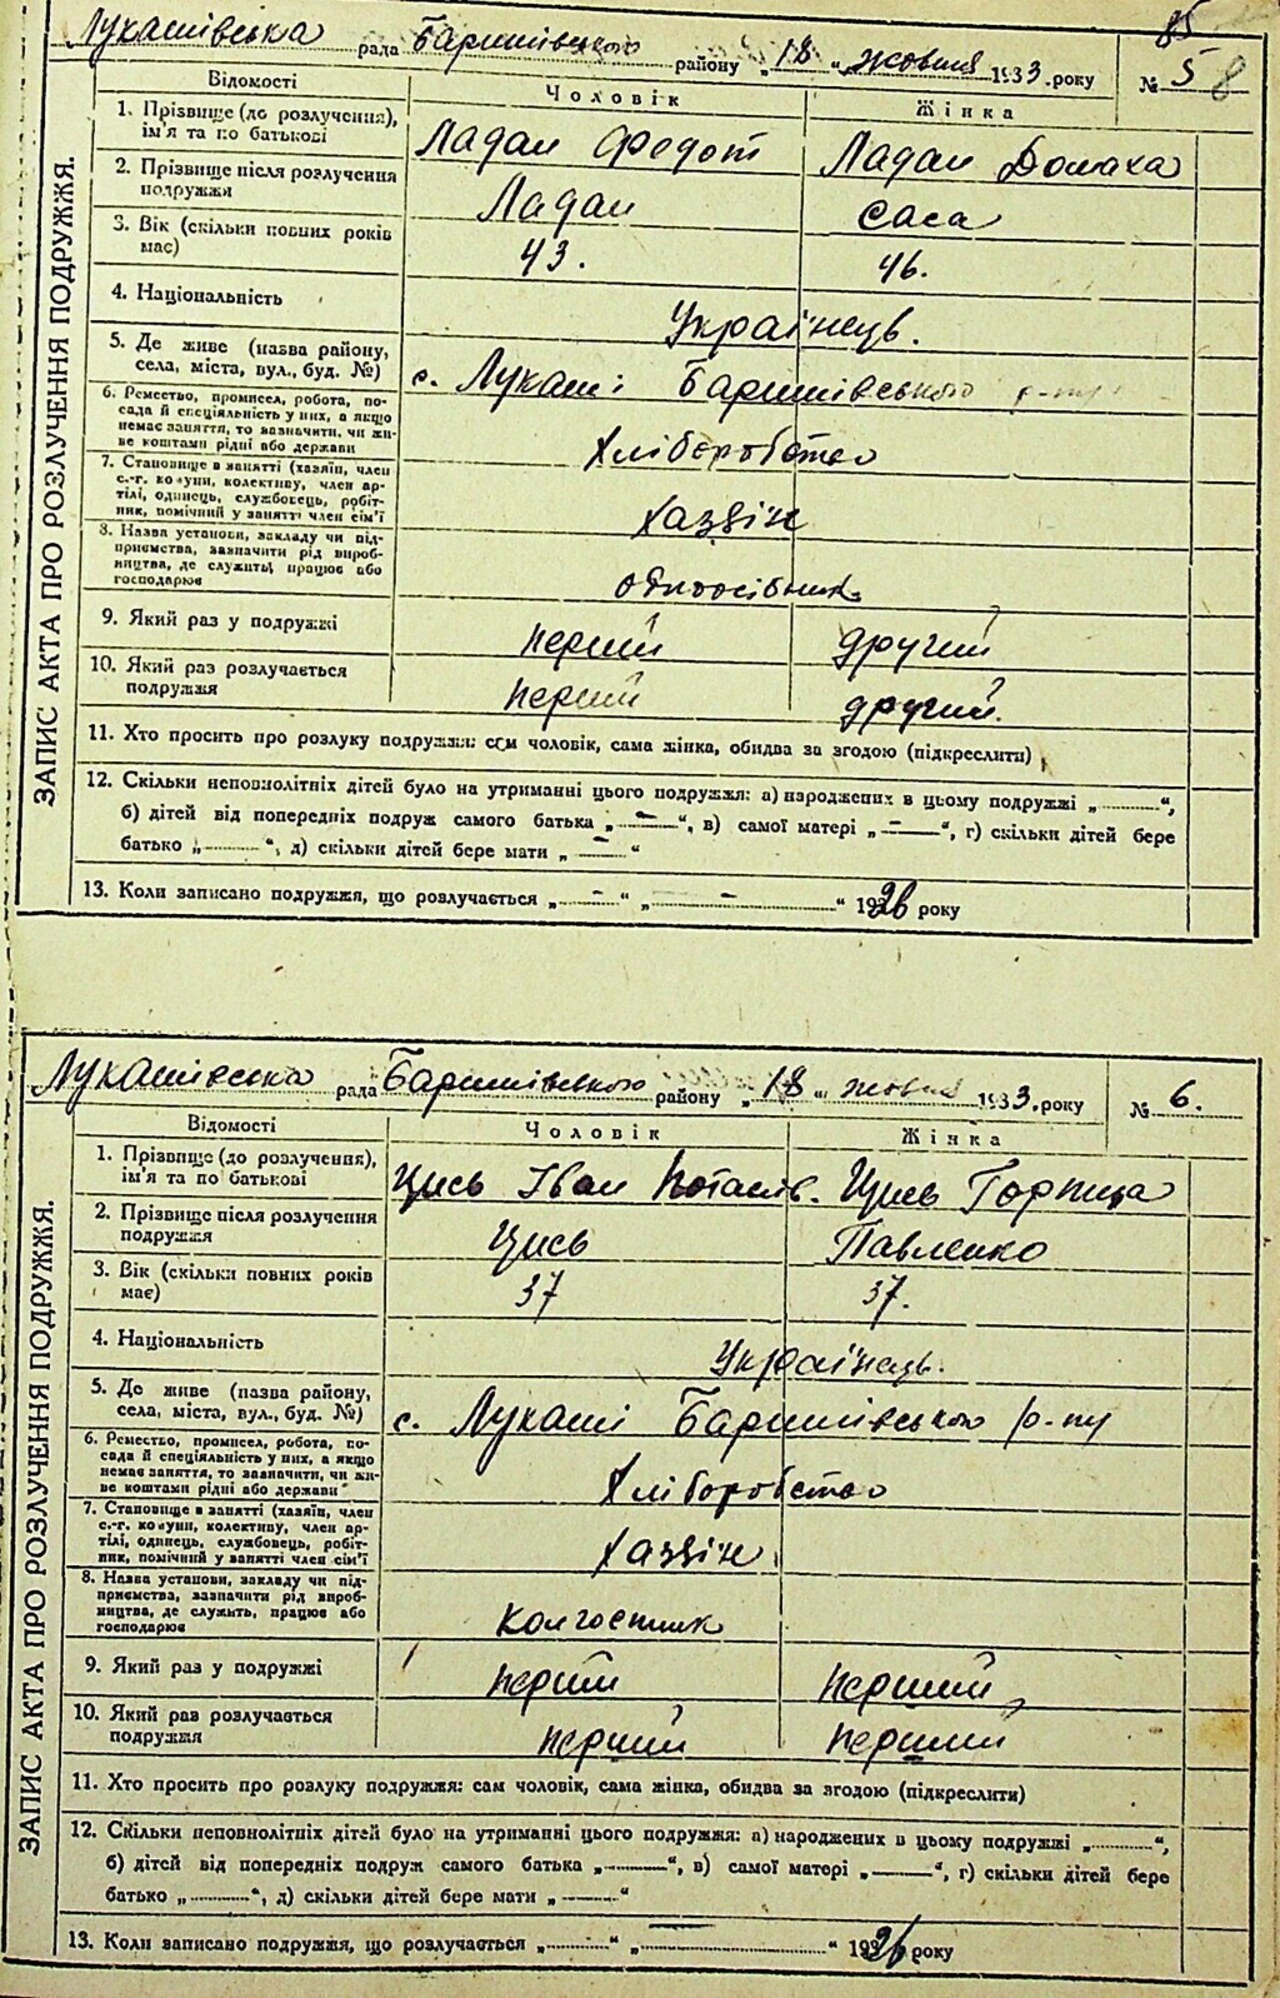 85
Лукашівська рада Баришівського району „18“ жовтня 1933. року № 5 8
ЗАПИС АКТА ПРО РОЗЛУЧЕННЯ ПОДРУЖЖЯ.
Відомості Чоловік Жінка
1. Прізвище (до розлучення), ім'я та по батькові Ладан Федот Ладан Домаха
2. Прізвище після розлучення подружжя Ладан Саса
3. Вік (скільки повних років має) 43. 46.
4. Національність Українець.
5. Де живе (назва району, села, міста, вул., буд. №) с. Лукаші Баришівського р-ну
6. Ремество, промисел, робота, по-
сада й спеціяльність у них, а якщо
немає заняття, то зазначити, чи жи-
ве коштами рідні або держави Хліборобство
7. Становище в занятті (хазяїн, член
с.-г. комуни, колективу, член ар-
тілі, одинець, службовець, робіт-
ник, помічний у занятті член сім'ї Хазяін
8. Назва установи, закладу чи під-
приємства, зазначити рід вироб-
ництва, де служить, працює або
господарює одноосібник.
9. Який раз у подружжі перший другий
10. Який раз розлучається подружжя перший другий.
11. Хто просить про розлуку подружжя: сам чоловік, сама жінка, обидва за згодою (підкреслити)
12. Скільки неповнолітніх дітей було на утриманні цього подружжя: а) народжених в цьому подружжі „ “,
б) дітей від попередніх подруж самого батька „ — “, в) самої матері „ — “, г) скільки дітей бере
батько „ “, д) скільки дітей бере мати „ — “
13. Коли записано подружжя, що розлучається „ - “ „ - “ 1926 року
Лукашівська рада Баришівського району „18“ жовтня 1933. року № 6.
ЗАПИС АКТА ПРО РОЗЛУЧЕННЯ ПОДРУЖЖЯ.
Відомості Чоловік Жінка
1. Прізвище (до розлучення), ім'я та по батькові Цись Іван Цись Горпина
2. Прізвище після розлучення подружжя Цись Павленко
3. Вік (скільки повних років має) 37 37.
4. Національність Українець.
5. Де живе (назва району, села, міста, вул., буд. №) с. Лукаші Баришівського р-ну
6. Ремество, промисел, робота, по-
сада й спеціяльність у них, а якщо
немає заняття, то зазначити, чи жи-
ве коштами рідні або держави Хліборобство
7. Становище в занятті (хазяїн, член
с.-г. комуни, колективу, член ар-
тілі, одинець, службовець, робіт-
ник, помічний у занятті член сім'ї Хазяін
8. Назва установи, закладу чи під-
приємства, зазначити рід вироб-
ництва, де служить, працює або
господарює Колгоспник
9. Який раз у подружжі перший перший
10. Який раз розлучається подружжя перший перший
11. Хто просить про розлуку подружжя: сам чоловік, сама жінка, обидва за згодою (підкреслити)
12. Скільки неповнолітніх дітей було на утриманні цього подружжя: а) народжених в цьому подружжі „ “,
б) дітей від попередніх подруж самого батька „ “, в) самої матері „ “, г) скільки дітей бере
батько „ “, д) скільки дітей бере мати „ “
13. Коли записано подружжя, що розлучається „ “ „ “ 1926 року